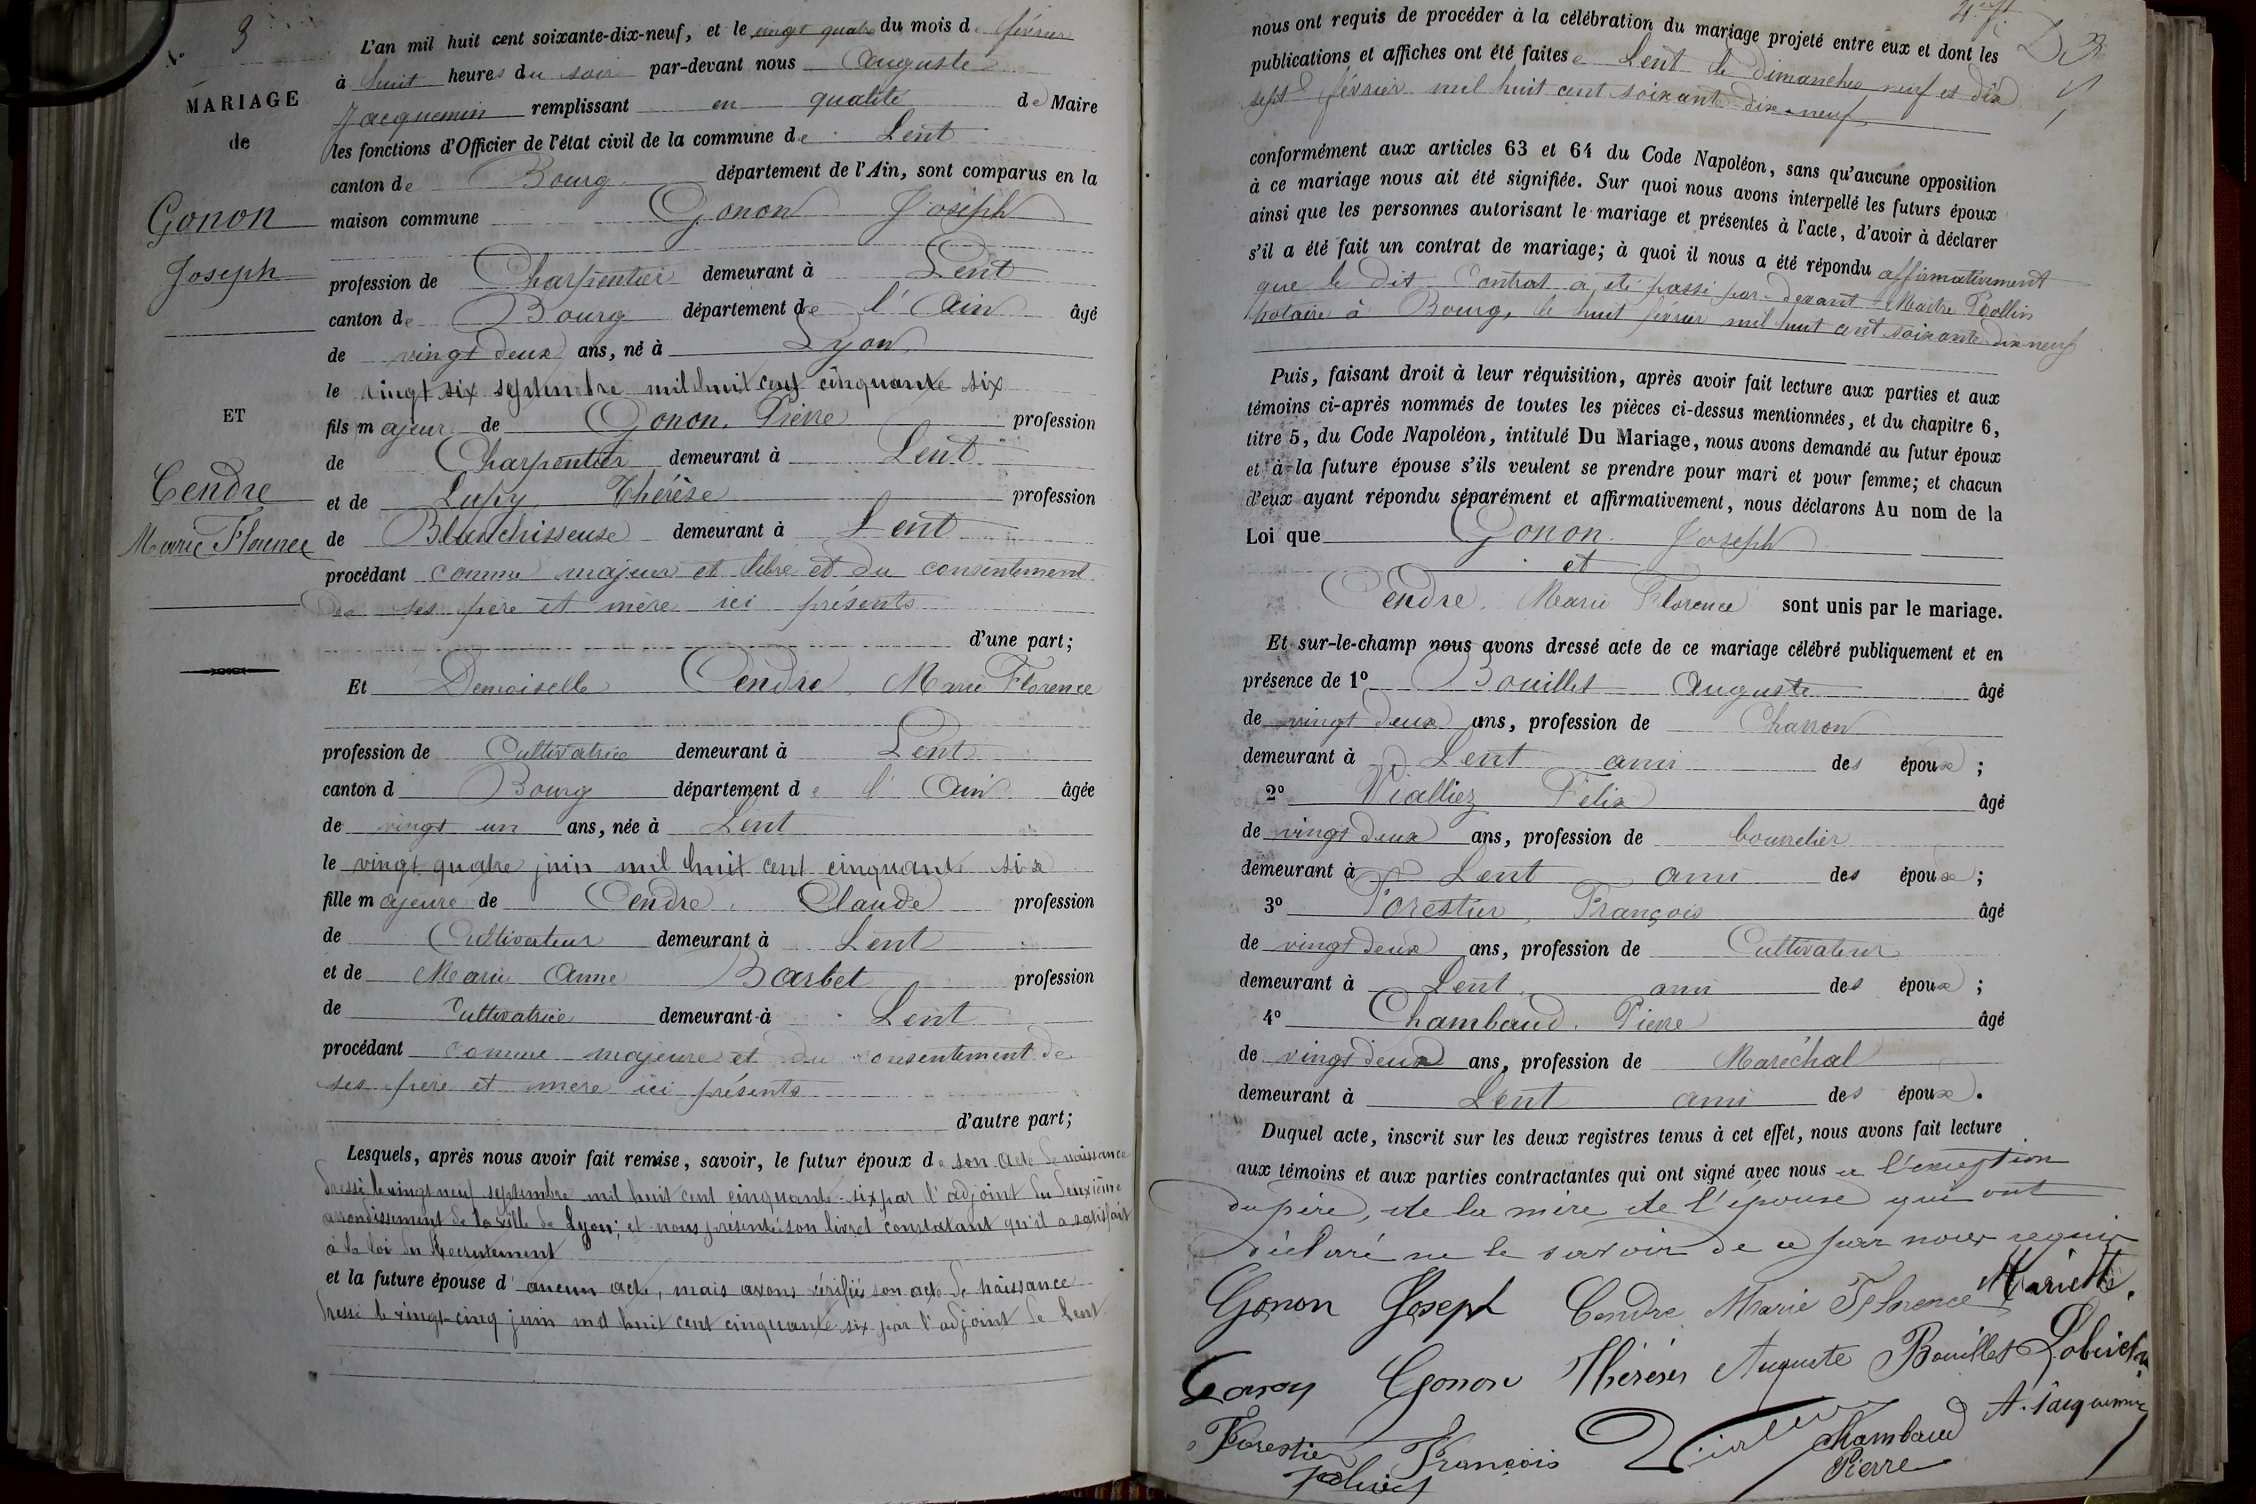 N° 3
MARIAGE
de
Gonon
Joseph
ET
Cendre
Marie Florence
L'an mil huit cent soixante-dix-neuf, et le vingt quatre du mois de février
à huit heures du soir par-devant nous Auguste
Jacquemin remplissant en qualité de Maire
les fonctions d'Officier de l'état civil de la commune de Lent
canton de Bourg département de l'Ain, sont comparus en la
maison commune Gonon Joseph
profession de Charpentier demeurant à Lent
canton de Bourg département de l'Ain âgé
de vingt deux ans, né à Lyon
le vingt six septembre mil huit cent cinquante six
fils majeur de Gonon, Pierre profession
de Charpentier demeurant à Lent
et de Lupy, Thérèse profession
de Blanchisseuse demeurant à Lent
procédant comme majeur et libre et du consentement
de ses père et mère ici présents
d'une part;
Et Demoiselle Cendre, Marie Florence
profession de Cultivatrice demeurant à Lent
canton d Bourg département de l'Ain âgée
de vingt un ans, née à Lent
le vingt quatre juin mil huit cent cinquante six
fille majeure de Cendre, Claude profession
de Cultivateur demeurant à Lent
et de Marie Anne Barbet profession
de Cultivatrice demeurant à Lent
procédant comme majeure et du consentement de
ses père et mère ici présents
d'autre part;
Lesquels, après nous avoir fait remise, savoir, le futur époux de son acte de naissance
dressé le vingt neuf septembre mil huit cent cinquante-six par l'adjoint du deuxième
arrondissement de la ville de Lyon; et nous présenté son livret constatant qu'il a satisfait
à la loi du Recrutement
et la future épouse d'aucun acte, mais avons vérifié son acte de naissance
dressé le vingt-cinq juin mil huit cent cinquante six par l'adjoint de Lent
nous ont requis de procéder à la célébration du mariage projeté entre eux et dont les
publications et affiches ont été faites à Lent les dimanches neuf et dix
sept février mil huit cent soixante-dix-neuf
conformément aux articles 63 et 64 du Code Napoléon, sans qu'aucune opposition
à ce mariage nous ait été signifiée. Sur quoi nous avons interpellé les futurs époux
ainsi que les personnes autorisant le mariage et présentes à l'acte, d'avoir à déclarer
s'il a été fait un contrat de mariage; à quoi il nous a été répondu affirmativement
que le dit Contrat a été passé par-devant Maitre Perollin
notaire à Bourg, le huit février mil huit cent soixante dix neuf
Puis, faisant droit à leur réquisition, après avoir fait lecture aux parties et aux
témoins ci-après nommés de toutes les pièces ci-dessus mentionnées, et du chapitre 6,
titre 5, du Code Napoléon, intitulé Du Mariage, nous avons demandé au futur époux
et à la future épouse s'ils veulent se prendre pour mari et pour femme; et chacun
d'eux ayant répondu séparément et affirmativement, nous déclarons Au nom de la
Loi que Gonon Joseph
et
Cendre, Marie Florence sont unis par le mariage.
Et sur-le-champ nous avons dressé acte de ce mariage célébré publiquement et en
présence de 1° Bouillet Auguste âgé
de vingt deux ans, profession de Charron
demeurant à Lent ami des époux ;
2° Vialliez Félix âgé
de vingt deux ans, profession de bourrelier
demeurant à Lent ami des époux ;
3° Forestier, François âgé
de vingt deux ans, profession de Cultivateur
demeurant à Lent ami des époux ;
4° Chambaud, Pierre âgé
de vingt deux ans, profession de Maréchal
demeurant à Lent ami des époux .
Duquel acte, inscrit sur les deux registres tenus à cet effet, nous avons fait lecture
aux témoins et aux parties contractantes qui ont signé avec nous à l'exception
du père, de la mère de l'épouse qui ont
déclaré ne le savoir de ce par nous requis
Gonon Joseph Cendre Marie Florence Mariette
Gonon Thérèse Auguste Bouillet
A. Jacquemin
Forestier François Chambaud
Pierre